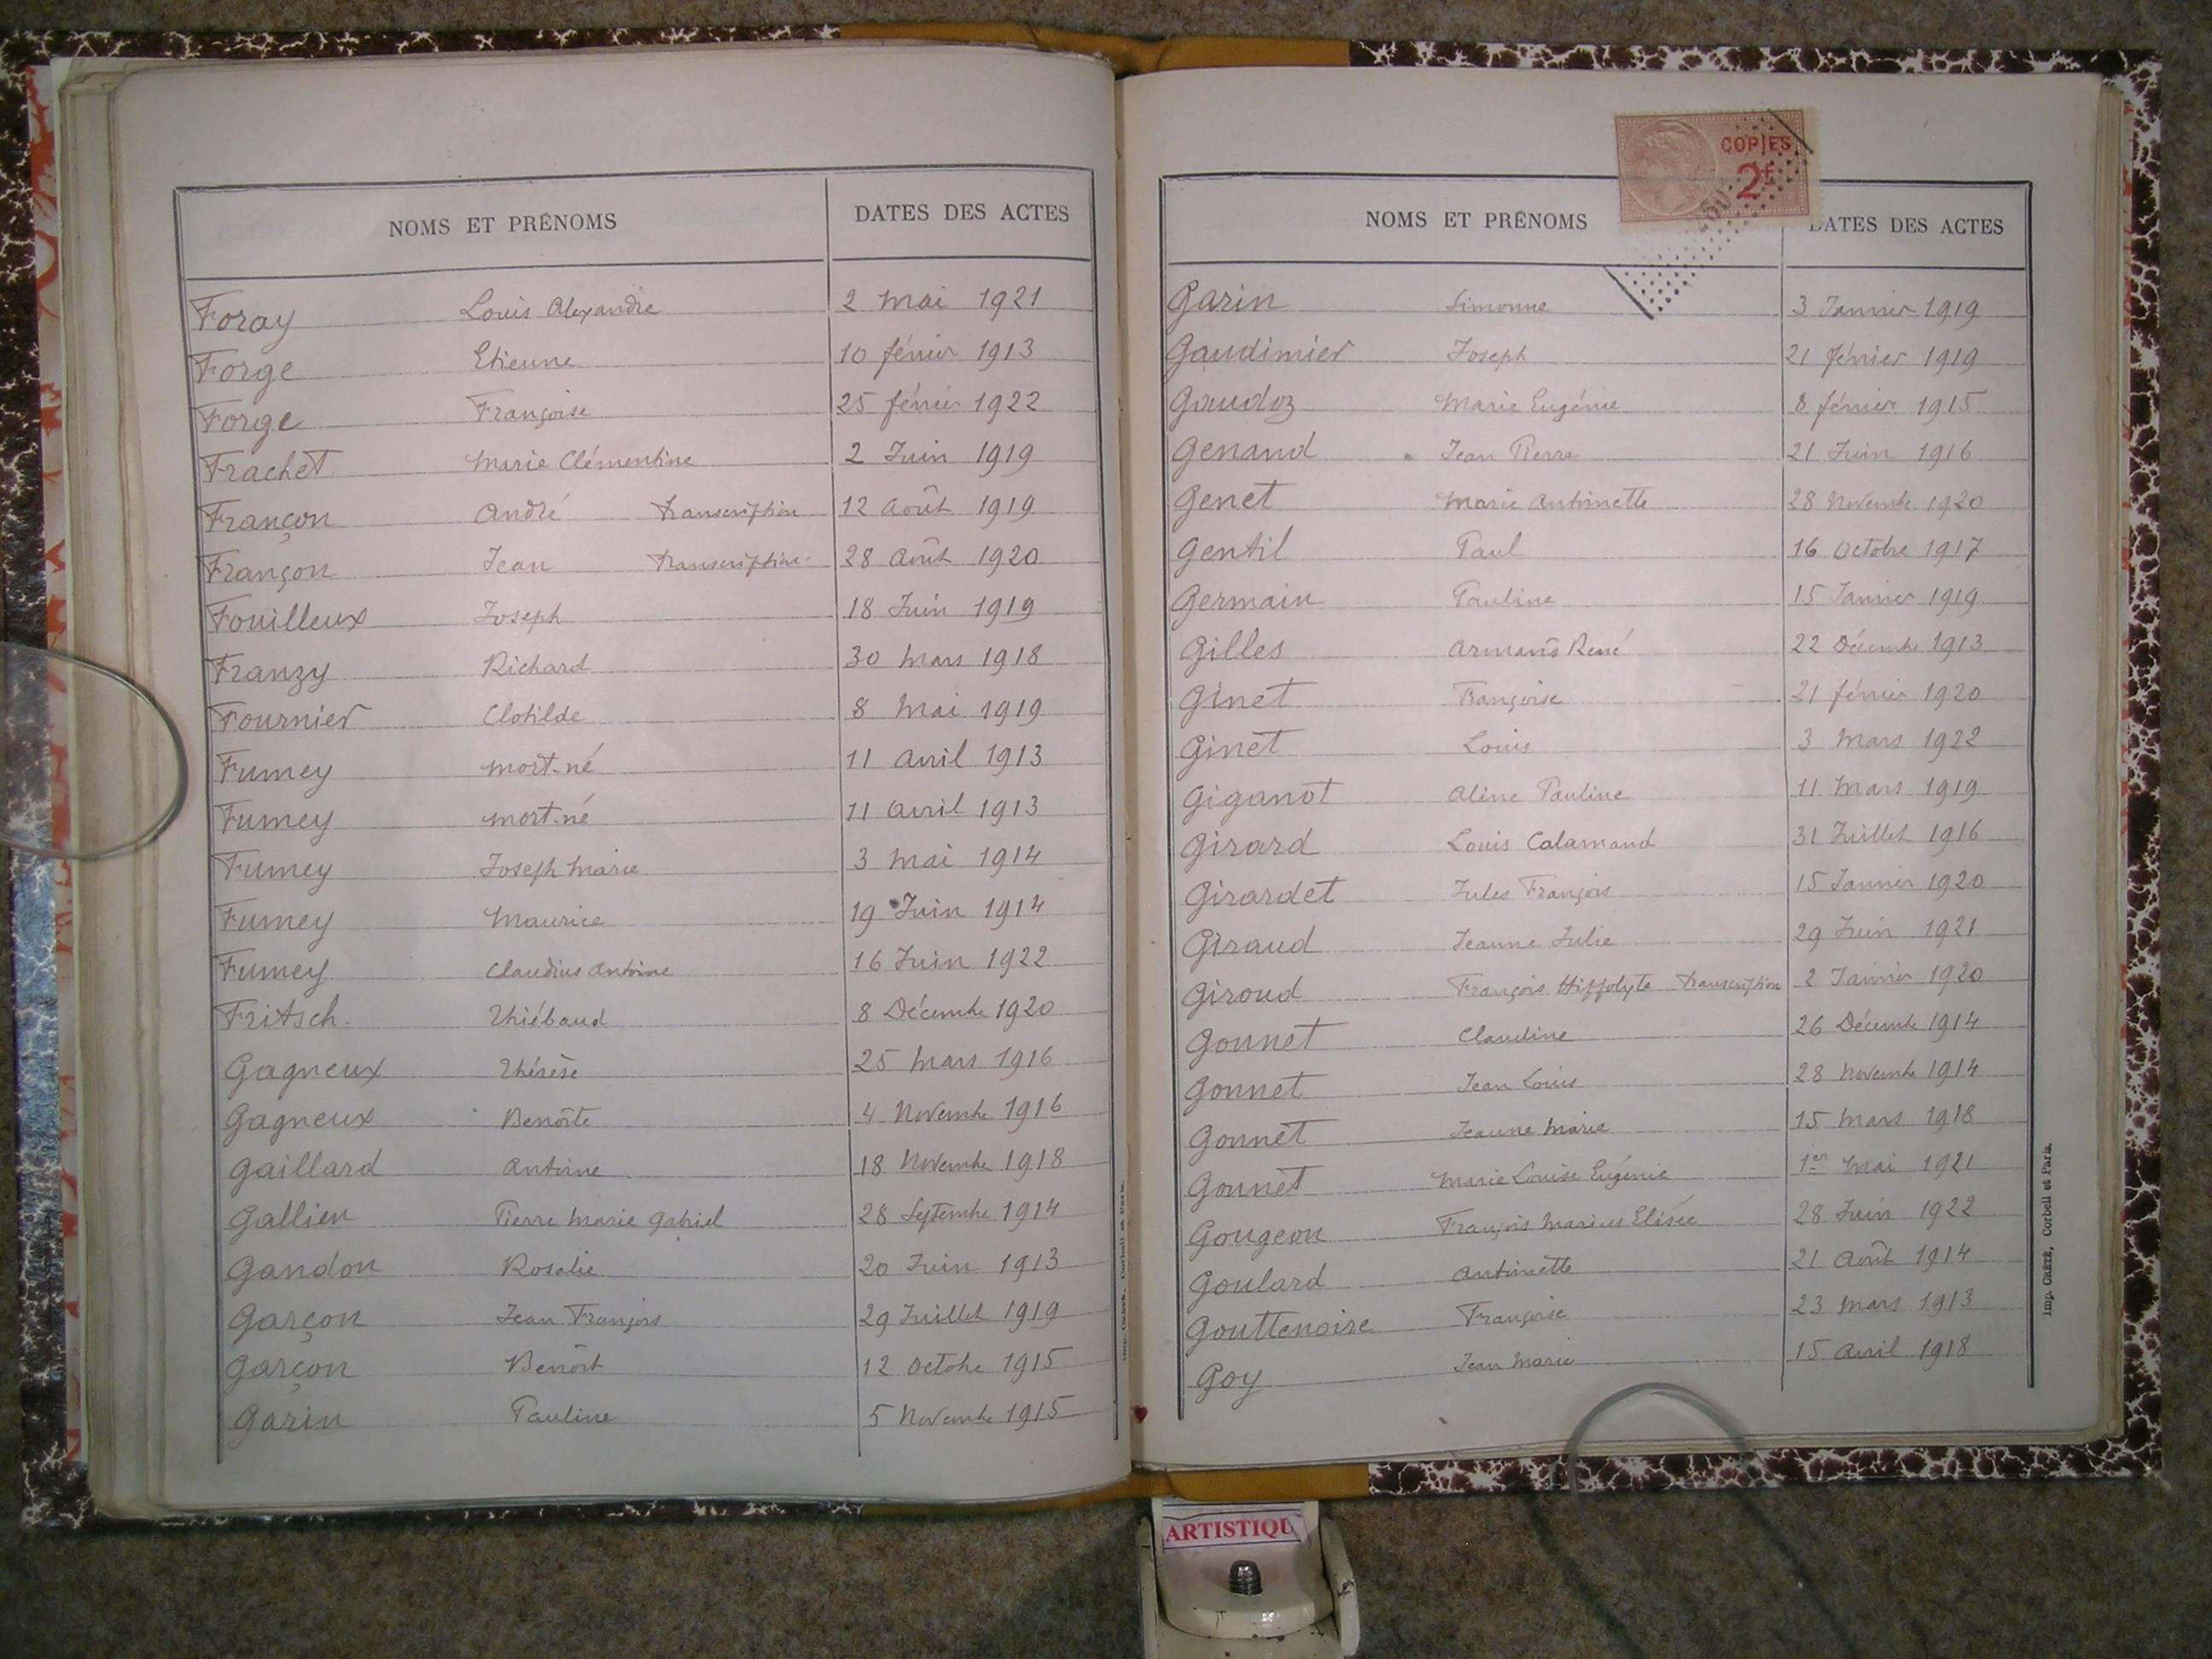 NOMS ET PRÉNOMS DATES DES ACTES
Foray Louis Alexandre 2 Mai 1921
Forge Etienne 10 février 1913
Forge Françoise 25 février 1922
Frachet Marie Clémentine 2 Juin 1919
Françon André transcription 12 Août 1919
Françon Jean transcription 28 Août 1920
Fouilleux Joseph 18 Juin 1919
Franzy Richard 30 Mars 1918
Fournier Clotilde 8 Mai 1919
Fumey mort-né 11 Avril 1913
Fumey mort-né 11 Avril 1913
Fumey Joseph Marie 3 Mai 1914
Fumey Maurice 19 Juin 1914
Fumey Claudius Antoine 16 Juin 1922
Fritsch Thiébaud 8 Décembre 1920
Gagneux Thérèse 25 Mars 1916
Gagneux Benoîte 4 Novembre 1916
Gaillard Antoine 18 Novembre 1918
Gallien Pierre Marie Gabriel 28 Septembre 1914
Gandon Rosalie 20 Juin 1913
Garçon Jean François 29 Juillet 1919
Garçon Benoît 12 Octobre 1915
Garin Pauline 5 Novembre 1915
COPIES
2F
NOMS ET PRÉNOMS DATES DES ACTES
Garin Simonne 3 Janvier 1919
Gaudimier Joseph 21 février 1919
Gaudoz Marie Eugénie 8 février 1915
Genand Jean Pierre 21 Juin 1916
Genet Marie Antoinette 28 Novembre 1920
Gentil Paul 16 Octobre 1917
Germain Pauline 15 Janvier 1919
Gilles Armand René 22 Décembre 1913
Ginet Françoise 21 février 1920
Ginet Louis 3 Mars 1922
Giganot Aline Pauline 11 Mars 1919
Girard Louis Calamand 31 Juillet 1916
Girardet Jules François 15 Janvier 1920
Giraud Jeanne Julie 29 Juin 1921
Giroud François Hippolyte transcription 2 Janvier 1920
Gonnet Claudine 26 Décembre 1914
Gonnet Jean Louis 28 Novembre 1914
Gonnet Jeanne Marie 15 Mars 1918
Gonnet Marie Louise Eugénie 1er Mai 1921
Gougeon François Marius Elisée 28 Juin 1922
Goulard Antoinette 21 Août 1914
Gouttenoire Françoise 23 Mars 1913
Goy Jean Marie 15 Avril 1918
Imp. CRÉTÉ, Corbeil et Paris.
ARTISTIQU